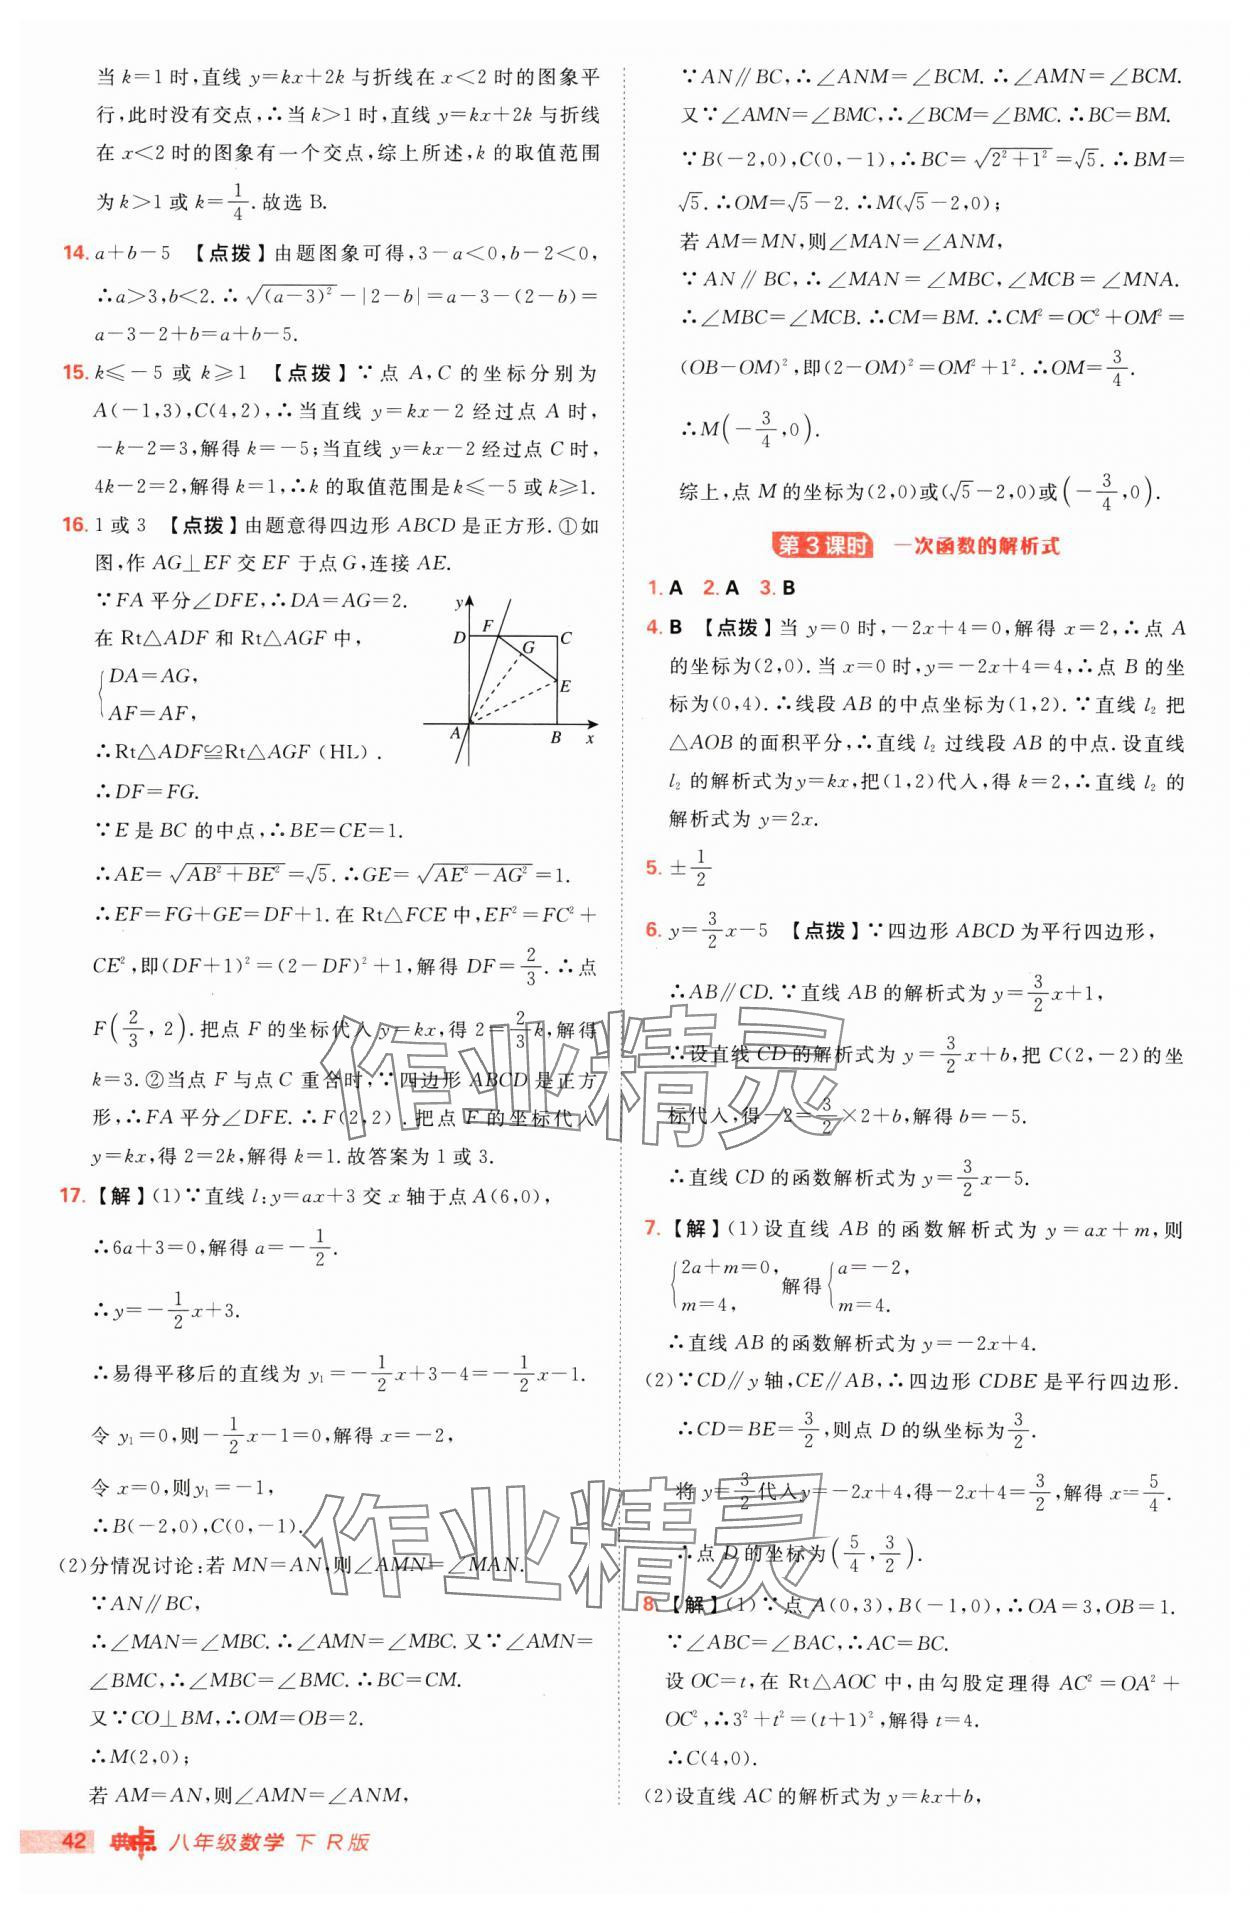 当 k=1 时,直线 y=kx+2k 与折线在 x<2 时的图象平
行,此时没有交点,∴当 k>1 时,直线 y=kx+2k 与折线
在 x<2 时的图象有一个交点,综上所述,k 的取值范围
为 k>1 或 k=1/4.故选 B.
14. a+b-5 【点拨】由题图象可得,3-a<0,b-2<0,
∴a>3,b<2.∴√(a-3)²-|2-b|=a-3-(2-b)=
a-3-2+b=a+b-5.
15. k≤-5 或 k≥1 【点拨】∵点 A,C 的坐标分别为
A(-1,3),C(4,2),∴当直线 y=kx-2 经过点 A 时,
-k-2=3,解得 k=-5;当直线 y=kx-2 经过点 C 时,
4k-2=2,解得 k=1,∴k 的取值范围是 k≤-5 或 k≥1.
16. 1 或 3 【点拨】由题意得四边形 ABCD 是正方形.①如
图,作 AG⊥EF 交 EF 于点 G,连接 AE.
∵FA 平分∠DFE,∴DA=AG=2.
在 Rt△ADF 和 Rt△AGF 中,
{DA=AG,
AF=AF,
∴Rt△ADF≌Rt△AGF(HL).
∴DF=FG.
y D F C G E A B x
∵E 是 BC 的中点,∴BE=CE=1.
∴AE=√(AB²+BE²)=√5.∴GE=√(AE²-AG²)=1.
∴EF=FG+GE=DF+1.在 Rt△FCE 中,EF²=FC²+
CE²,即(DF+1)²=(2-DF)²+1,解得 DF=2/3.∴点
F(2/3,2).把点 F 的坐标代入 y=kx,得 2=2/3k,解得
k=3.②当点 F 与点 C 重合时,∵四边形 ABCD 是正方
形,∴FA 平分∠DFE.∴F(2,2).把点 F 的坐标代入
y=kx,得 2=2k,解得 k=1.故答案为 1 或 3.
17. 【解】(1)∵直线 l:y=ax+3 交 x 轴于点 A(6,0),
∴6a+3=0,解得 a=-1/2.
∴y=-1/2x+3.
∴易得平移后的直线为 y₁=-1/2x+3-4=-1/2x-1.
令 y₁=0,则-1/2x-1=0,解得 x=-2,
令 x=0,则y₁=-1,
∴B(-2,0),C(0,-1).
(2)分情况讨论:若 MN=AN,则∠AMN=∠MAN.
∵AN∥BC,
∴∠MAN=∠MBC.∴∠AMN=∠MBC.又∵∠AMN=
∠BMC,∴∠MBC=∠BMC.∴BC=CM.
又∵CO⊥BM,∴OM=OB=2.
∴M(2,0);
若 AM=AN,则∠AMN=∠ANM,
∵AN∥BC,∴∠ANM=∠BCM.∴∠AMN=∠BCM.
又∵∠AMN=∠BMC,∴∠BCM=∠BMC.∴BC=BM.
∵B(-2,0),C(0,-1),∴BC=√(2²+1²)=√5.∴BM=
√5.∴OM=√5-2.∴M(√5-2,0);
若 AM=MN,则∠MAN=∠ANM,
∵AN∥BC,∴∠MAN=∠MBC,∠MCB=∠MNA.
∴∠MBC=∠MCB.∴CM=BM.∴CM²=OC²+OM²=
(OB-OM)²,即(2-OM)²=OM²+1².∴OM=3/4.
∴M(-3/4,0).
综上,点 M 的坐标为(2,0)或(√5-2,0)或(-3/4,0).
第3课时 一次函数的解析式
1. A 2. A 3. B
4. B 【点拨】当 y=0 时,-2x+4=0,解得 x=2,∴点 A
的坐标为(2,0).当 x=0 时,y=-2x+4=4,∴点 B 的坐
标为(0,4).∴线段 AB 的中点坐标为(1,2).∵直线 l₂ 把
△AOB 的面积平分,∴直线 l₂ 过线段 AB 的中点.设直线
l₂ 的解析式为y=kx,把(1,2)代入,得 k=2,∴直线 l₂ 的
解析式为 y=2x.
5. ±1/2
6. y=3/2x-5 【点拨】∵四边形 ABCD 为平行四边形,
∴AB∥CD.∵直线 AB 的解析式为 y=3/2x+1,
∴设直线 CD 的解析式为 y=3/2x+b,把 C(2,-2)的坐
标代入,得-2=3/2×2+b,解得 b=-5.
∴直线 CD 的函数解析式为 y=3/2x-5.
7. 【解】(1)设直线 AB 的函数解析式为 y=ax+m,则
{2a+m=0, m=4, 解得 {a=-2, m=4.
∴直线 AB 的函数解析式为 y=-2x+4.
(2)∵CD∥y 轴,CE∥AB,∴四边形 CDBE 是平行四边形.
∴CD=BE=3/2,则点 D 的纵坐标为3/2.
将 y=3/2代入y=-2x+4,得-2x+4=3/2,解得 x=5/4.
∴点 D 的坐标为(5/4,3/2).
8. 【解】(1)∵点 A(0,3),B(-1,0),∴OA=3,OB=1.
∵∠ABC=∠BAC,∴AC=BC.
设 OC=t,在 Rt△AOC 中,由勾股定理得 AC²=OA²+
OC²,∴3²+t²=(t+1)²,解得 t=4.
∴C(4,0).
(2)设直线 AC 的解析式为 y=kx+b,
42 典中点 八年级数学 下 R版
作业精灵
作业精灵